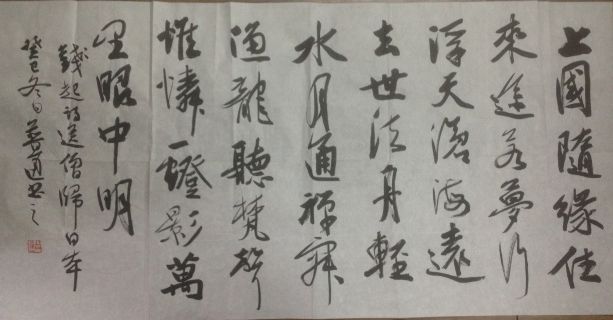 上國隨緣住
來途若夢行
浮天滄海遠
去世法舟輕
水月通禪寂
漁龍聽梵聲
惟憐一燈影萬
里眼中明
錢起詩送僧歸日本
癸巳冬日通書之